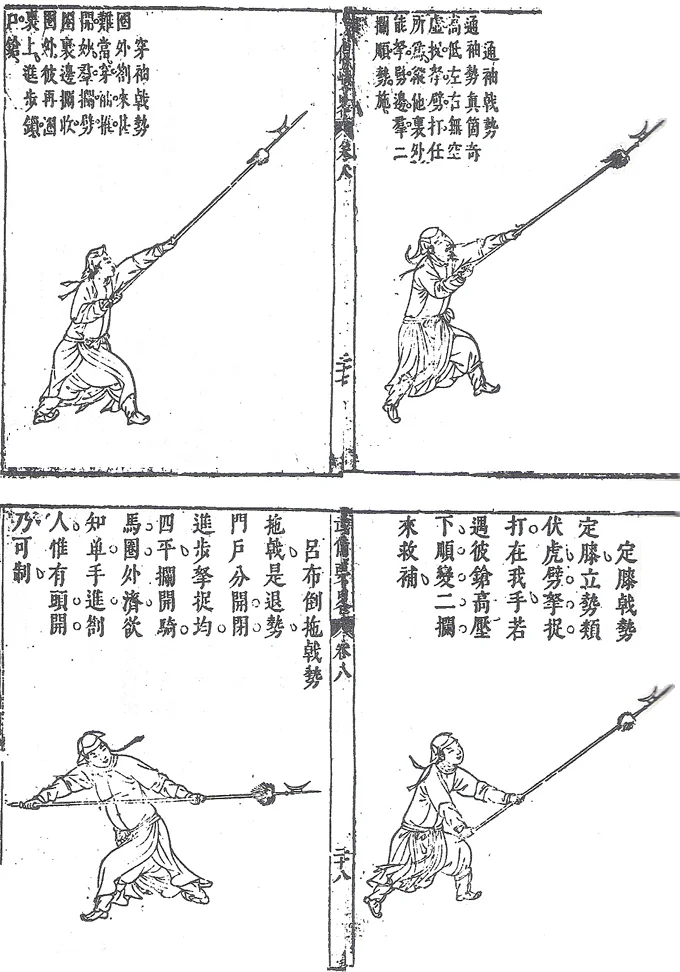 通袖戟勢
通袖勢真箇奇
高低左右無空
虛捉拏劈打任
所為縱他裏外
能拏劈邊羣二
攔順勢施
卷八
二十七
穿袖戟勢
圈外劄來
難當穿袖推
開妙羣攔劈
圈裏邊攔收
圈外彼再圈
裏上進步鎖
鎗
定膝戟勢
定膝立勢類
伏虎劈拏捉
打在我手若
遇彼鎗高壓
下順變二攔
來救補
武備要略
卷八
二十八
呂布倒拖戟勢
拖戟是退勢
門戶分開閉
進步拏捉均
四平攔開騎
馬圈外濟欲
知单手進劄
人惟有頭開
乃可制